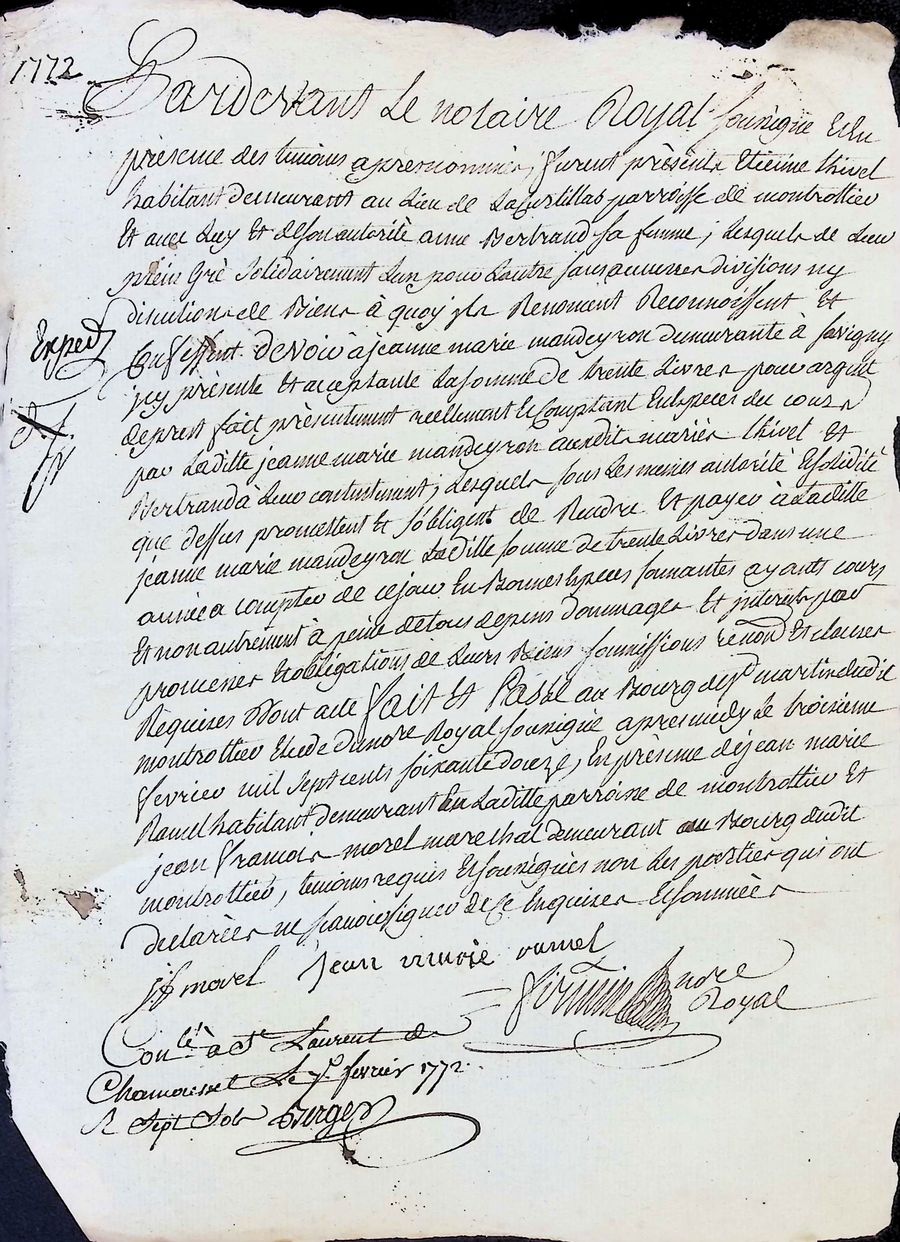 1772
Pardevant Le notaire Royal soussigné Et En
présence des temoins apresnommés, furent présents Etienne thivel
habitant demeurant au Lieu de parroisse de montrottier
Et avec Luy Et de son autorité anne Bertrand sa femme, Lesquels de Leur
plein Gré Solidairement Lun pour Lautre sans aucunes divisions ny
discutions de Biens à quoy jls Renoncent Reconnoissent Et
Confessent devoir à jeanne marie mandeyron demeurante à savigny
jcy présente Et acceptante La somme de trente Livres pour argent
de prest fait présentement réellement Et Comptant En Especes du cours
par Laditte jeanne marie mandeyron auxdits mariés thivel Et
Bertrand à Leur contentement, Lesquels sous Les memes autorité Et solidité
que dessus promettent Et s'obligent de Rendre Et payer à Laditte
jeanne marie mandeyron Laditte somme de trente Livres dans une
année a compter de ce jour En Bonnes Especes sonnantes ayants cours
Et non autrement à peine de tous depens dommages Et jnterets par
promesses Et obligations de Leurs Biens soumissions renonc Et clauses
Requises Dont acte fait Et Passé au Bourg de st martin dudit
montrottier Etude du nore Royal soussigné apres midy Le troisieme
fevrier mil sept cents soixante douze, En présence de jean marie
Ramel habitant demeurant En Laditte parroisse de montrottier Et
jean francois morel marechal demeurant au Bourg dudit
montrottier, temoins requis Et soussignés non Les parties qui ont
declarées ne scavoir signer de ce Enquises Et sommées
jf morel jean marie ramel
nore
Royal
Exped
Conlé à St Laurent de
Chamousset Le 7e fevrier 1772
R Sept Sols Berger